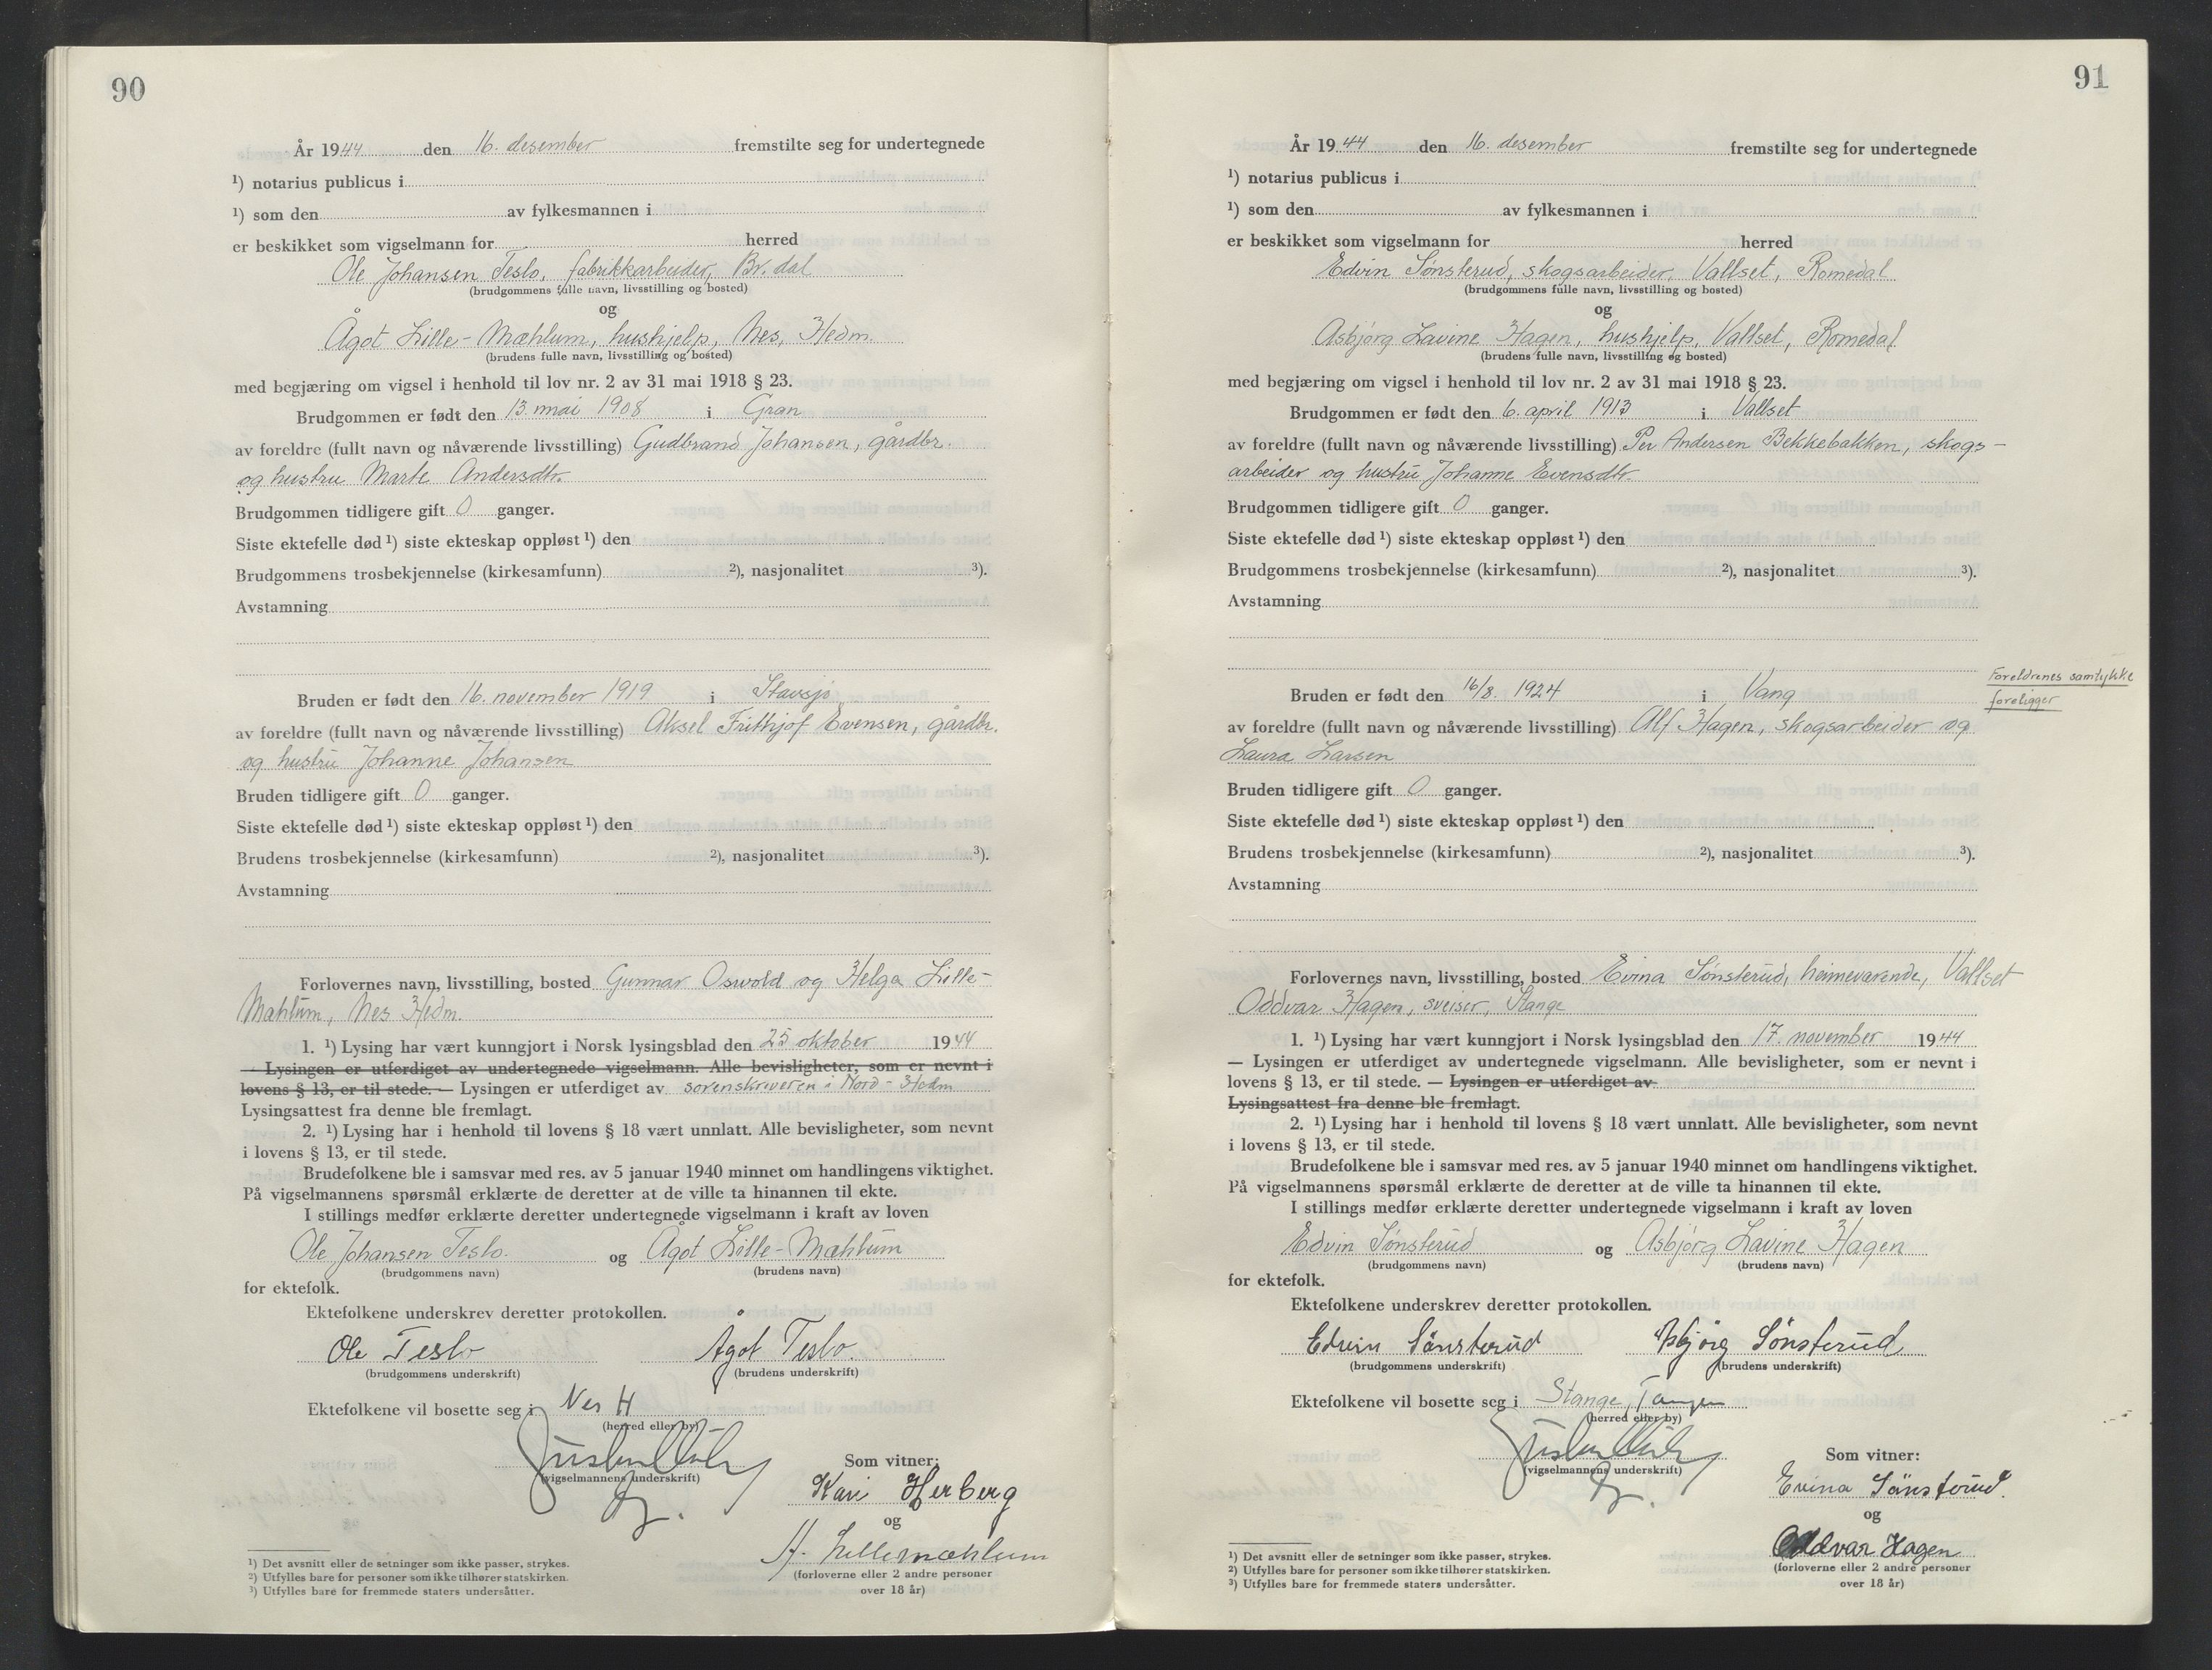 90
År 1944 den 16. desember fremstilte seg for undertegnede
¹) notarius publicus i
¹) som den av fylkesmannen i
er beskikket som vigselmann for herred
Ole Johansen Teslo, fabrikkarbeider, Br.dal
(brudgommens fulle navn, livsstilling og bosted)
og
Ågot Lille-Mæhlum, hushjelp, Nes, Hedm.
(brudens fulle navn, livsstilling og bosted)
med begjæring om vigsel i henhold til lov nr. 2 av 31 mai 1918 § 23.
Brudgommen er født den 13. mai 1908 i Gran
av foreldre (fullt navn og nåværende livsstilling) Gudbrand Johansen, gårdbr.
og hustru Marte Andersdtr.
Brudgommen tidligere gift 0 ganger.
Siste ektefelle død ¹) siste ekteskap oppløst ¹) den
Brudgommens trosbekjennelse (kirkesamfunn) ²), nasjonalitet ³).
Avstamning
Bruden er født den 16. november 1919 i Stavsjø
av foreldre (fullt navn og nåværende livsstilling) Aksel Frithjof Evensen, gårdbr.
og hustru Johanne Johansen
Bruden tidligere gift 0 ganger.
Siste ektefelle død ¹) siste ekteskap oppløst ¹) den
Brudens trosbekjennelse (kirkesamfunn) ²), nasjonalitet ³).
Avstamning
Forlovernes navn, livsstilling, bosted Gunnar Oswold og Helga Lille-
Mæhlum, Nes Hedm.
1. ¹) Lysing har vært kunngjort i Norsk lysingsblad den 25 oktober 1944
— Lysingen er utferdiget av undertegnede vigselmann. Alle bevisligheter, som er nevnt i
lovens § 13, er til stede. — Lysingen er utferdiget av sorenskriveren i Nord-Hedm
Lysingsattest fra denne ble fremlagt.
2. ¹) Lysing har i henhold til lovens § 18 vært unnlatt. Alle bevisligheter, som nevnt
i lovens § 13, er til stede.
Brudefolkene ble i samsvar med res. av 5 januar 1940 minnet om handlingens viktighet.
På vigselmannens spørsmål erklærte de deretter at de ville ta hinannen til ekte.
I stillings medfør erklærte deretter undertegnede vigselmann i kraft av loven
Ole Johansen Teslo. og Ågot Lille-Mæhlum
(brudgommens navn) (brudens navn)
for ektefolk.
Ektefolkene underskrev deretter protokollen.
Ole Teslo Ågot Teslo.
(brudgommens underskrift) (brudens underskrift)
Ektefolkene vil bosette seg i Nes H
(herred eller by)
(vigselmannens underskrift)
Som vitner:
Kari Herberg
og
H. Lillemæhlum
(forloverne eller 2 andre personer
over 18 år)
¹) Det avsnitt eller de setninger som ikke passer, strykes.
²) Utfylles bare for personer som ikke tilhører statskirken.
³) Utfylles bare for fremmede staters undersåtter.
91
År 1944 den 16. desember fremstilte seg for undertegnede
¹) notarius publicus i
¹) som den av fylkesmannen i
er beskikket som vigselmann for herred
Edvin Sønsterud, skogsarbeider, Vallset, Romedal
(brudgommens fulle navn, livsstilling og bosted)
og
Asbjørg Lavine Hagen, hushjelp, Vallset, Romedal
(brudens fulle navn, livsstilling og bosted)
med begjæring om vigsel i henhold til lov nr. 2 av 31 mai 1918 § 23.
Brudgommen er født den 6. april 1913 i Vallset
av foreldre (fullt navn og nåværende livsstilling) Per Andersen Bekkebakken, skogs-
arbeider og hustru Johanne Evensdtr.
Brudgommen tidligere gift 0 ganger.
Siste ektefelle død ¹) siste ekteskap oppløst ¹) den
Brudgommens trosbekjennelse (kirkesamfunn) ²), nasjonalitet ³).
Avstamning
Foreldrenes samtykke
foreligger
Bruden er født den 16/8. 1924 i Vang
av foreldre (fullt navn og nåværende livsstilling) Alf Hagen, skogsarbeider og
Laura Larsen
Bruden tidligere gift 0 ganger.
Siste ektefelle død ¹) siste ekteskap oppløst ¹) den
Brudens trosbekjennelse (kirkesamfunn) ²), nasjonalitet ³).
Avstamning
Forlovernes navn, livsstilling, bosted Evina Sønsterud, heimeværende, Vallset
Oddvar Hagen, sveiser, Stange
1. ¹) Lysing har vært kunngjort i Norsk lysingsblad den 17. november 1944
— Lysingen er utferdiget av undertegnede vigselmann. Alle bevisligheter, som er nevnt i
lovens § 13, er til stede. — Lysingen er utferdiget av
Lysingsattest fra denne ble fremlagt.
2. ¹) Lysing har i henhold til lovens § 18 vært unnlatt. Alle bevisligheter, som nevnt
i lovens § 13, er til stede.
Brudefolkene ble i samsvar med res. av 5 januar 1940 minnet om handlingens viktighet.
På vigselmannens spørsmål erklærte de deretter at de ville ta hinannen til ekte.
I stillings medfør erklærte deretter undertegnede vigselmann i kraft av loven
Edvin Sønsterud og Asbjørg Lavine Hagen
(brudgommens navn) (brudens navn)
for ektefolk.
Ektefolkene underskrev deretter protokollen.
Edvin Sönsterud Asbjörg Sönsterud
(brudgommens underskrift) (brudens underskrift)
Ektefolkene vil bosette seg i Stange, Tangen
(herred eller by)
(vigselmannens underskrift)
Som vitner:
Evina Sönsterud.
og
Oddvar Hagen
(forloverne eller 2 andre personer
over 18 år)
¹) Det avsnitt eller de setninger som ikke passer, strykes.
²) Utfylles bare for personer som ikke tilhører statskirken.
³) Utfylles bare for fremmede staters undersåtter.